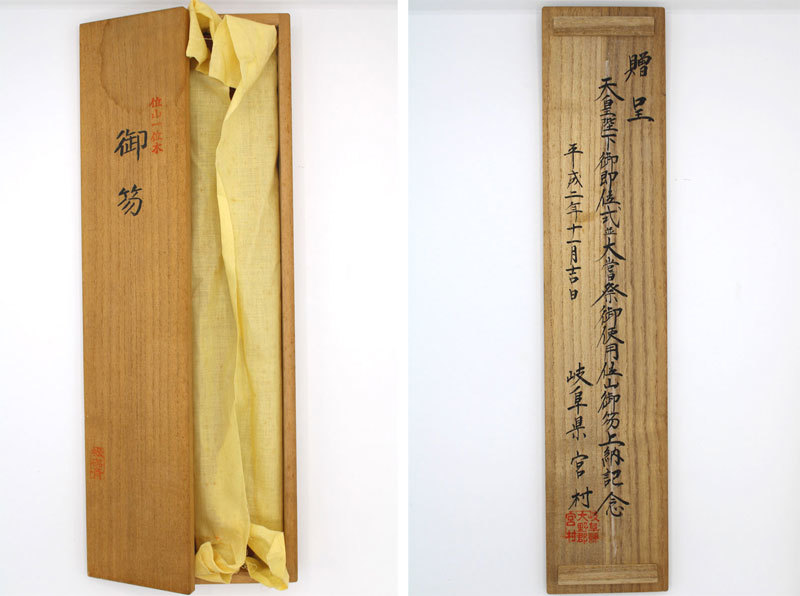 位山一位木
御笏
贈呈
天皇陛下御即位式並大嘗祭御使用位山御笏上納記念
平成二年十一月吉日
岐阜県宮村
岐阜縣
大野郡
宮村